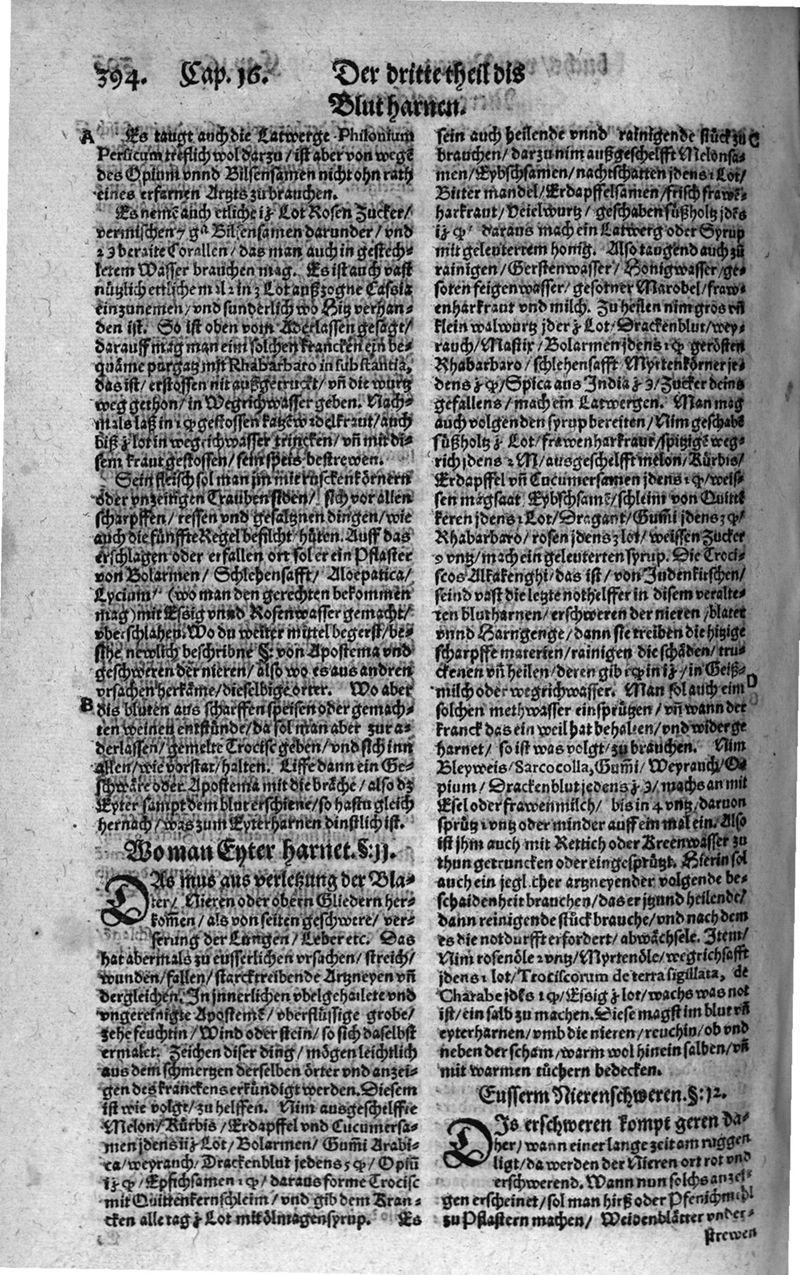 394. Cap. 16. Der dritte theil dis
Blut harnen.
A Es taugt auch die Latwerge Philonium
Persicum trefflich wol darzu / ist aber von wegẽ
des Opium vnnd Bilsensamen nicht ohn rath
eines erfarnen Artzts zu brauchen.
Es nemẽ auch etliche Lot Rosen Zucker /
vermischen Bilsensamen darunder / vnd
beraite Corallen / das man auch in gestech-
letem Wasser brauchen mag. Es ist auch vast
nützlich etliche mal in Lot außzogne Cassia
einzunemen / vnd sunderlich wo Hitz verhan-
den ist. So ist oben vom Aderlassen gesagt /
darauff mag man eim solchen krancken ein be-
quäme purgatz mit Rhabarbaro in substantia,
das ist / erstossen nit außgetruckt / vñ die wurtz
weg gethon / in Wegrichwasser geben. Nach-
mals laß in gestossen katzẽwedelkraut / auch
biß lot in wegrichwasser trincken / vñ mit di-
sem kraut gestossen / sein speis bestrewen.
Sein fleisch sol man jm mit rusckenkörnern
oder vnzeitigen Trauben siden / sich vor allen
scharpffen / ressen vnd gesaltznen dingen / wie
auch die fünffte Regel besilcht / hüten. Auff das
erschlagen oder erfallen ort sol er ein Pflaster
von Bolarmen / Schlehensafft / Aloepatica /
Lycium / (wo man den gerechten bekommen
mag) mit Essig vnnd Rosenwasser gemacht /
vberschlahen. Wo du weiter mittel begerst / be-
sihe newlich beschribne §: von Apostema vnd
geschweren der nieren / also wo es aus andren
vrsachen herkäme / dieselbige örter. Wo aber
B dis bluten aus scharffen speisen oder gemach-
ten weinen entstünde / da sol man aber zur a-
derlassen / gemelte Trocisc geben / vnd sich inn
allen / wie vorstat / halten. Liffe dann ein Ge-
schwäre oder Apostema mit die bräche / also dz
Eyter sampt dem blut erschiene / so hastu gleich
hernach / was zum Eyterharnen dinstlich ist.
Wo man Eyter harnet. §: 11.
DAs mus aus verletzung der Bla-
ter / Nieren oder obern Gliedern her-
kom̃en / als von seiten geschwere / ver-
serung der Lungen / Leber etc. Das
hat abermals zu eusserlichen vrsachen / streich /
wunden / fallen / starcktreibende Artzneyen vñ
dergleichen. In jnnerlichen vbelgehailete vnd
vngereinigte Apostemẽ / vberflüssige grobe /
zehe feuchtin / Wind oder stein / so sich daselbst
ermalet. Zeichen diser ding / mögen leichtlich
aus dem schmertzen derselben örter vnd anzei-
gen des kranckens erkündigt werden. Diesem
ist wie volgt / zu helffen. Nim ausgeschelffte
Melon / Kürbis / Erdapffel vnd Cucumersa-
men jdens Lot / Bolarmen / Gum̃i Arabi-
ca / weyrauch / Drackenblut jedens / Opiũ
/ Epfichsamen / daraus forme Trocisc
mit Quittenkernschleim / vnd gib dem Kran-
cken alle tag Lot mit ölmagensyrup. Es
sein auch heilende vnnd rainigende stück zu C
brauchen / darzu nim außgeschelfft Melonsa-
men / Eybschsamen / nachtschatten jdens Lot /
Bitter mandel / Erdapffelsamen / frisch frawẽ-
harkraut / Veielwurtz / geschaben süßholtz jdes
daraus mach ein Latwerg oder Syrup
mit geleutertem honig. Also taugend auch zů
rainigen / Gerstenwasser / Honigwasser / ge-
soten feigenwasser / gesotner Marobel / fraw-
enharkraut vnd milch. Zu heilen nim gros vñ
klein walwurtz jder Lot / Drackenblut / wey-
rauch / Mastix / Bolarmen jdens gerösten
Rhabarbaro / schlehensafft Myrtenkörner je-
dens / Spica aus India / Zucker deins
gefallens / mach ein Latwergen. Man mag
auch volgenden syrup bereiten / Nim geschabẽ
süßholtz Lot / frawenharkraut / spitzige weg-
rich jdens M / ausgeschelfft melon / Kürbis /
Erdapffel vñ Cucumersamen jdens / weis-
sen magsaat Eybschsamẽ / schleim von Quitt-
keren jdens Lot / Dragant / Gum̃i jdens /
Rhabarbaro / rosen jdens lot / weissen Zucker
9 vntz / mach ein geleuterten syrup. Die Troci-
scos Alkakenghi / das ist / von Judenkirschen /
seind vast die letzte nöthelffer in disem veralte-
ten blutharnen / erschweren der nieren / blater
vnnd Harngenge / dann sie treiben die hitzige
scharpffe materien / rainigen die schäden / tru-
ckenen vñ heilen / deren gib in / in Geiß-
milch oder wegrichwasser. Man sol auch eim D
solchen methwasser einsprützen / vñ wann der
kranck das ein weil hat behalten / vnd wider ge
harnet / so ist was volgt / zu brauchen. Nim
Bleyweis / Sarcocolla, Gum̃i / Weyrauch / O-
pium / Drackenblut jedens / machs an mit
Esel oder frawenmilch / bis in 4 vntz / daruon
sprütz 1 vntz oder minder auff ein mal ein. Also
ist jhm auch mit Rettich oder Kreenwasser zu
thun getruncken oder eingesprützt. Hierin sol
auch ein jeglicher artzneyender volgende be-
schaidenheit brauchen / das er jtzund heilende /
dann reinigende stück brauche / vnd nach dem
es die notdurfft erfordert / abwächsele. Item /
Nim rosenöle 2 vntz / Myrtenöle / wegrichsafft
jdens 1 lot / Trociscorum de terra sigillata, de
Charabe jdes / Essig lot / wachs was not
ist / ein salb zu machen. Diese magst im blut vñ
eyterharnen / vmb die nieren / reuchin / ob vnd
neben der scham / warm wol hinein salben / vñ
mit warmen tüchern bedecken.
Eusserm Nierenschweren. §: 12.
DIs erschweren kompt geren da-
her / wann einer lange zeit am ruggen
ligt / da werden der Nieren ort rot vnd
erschwerend. Wann nun solchs anzei-
gen erscheinet / sol man hirß oder Pfenichmehl
zu Pflastern machen / Weidenblätter vnder-
strewen